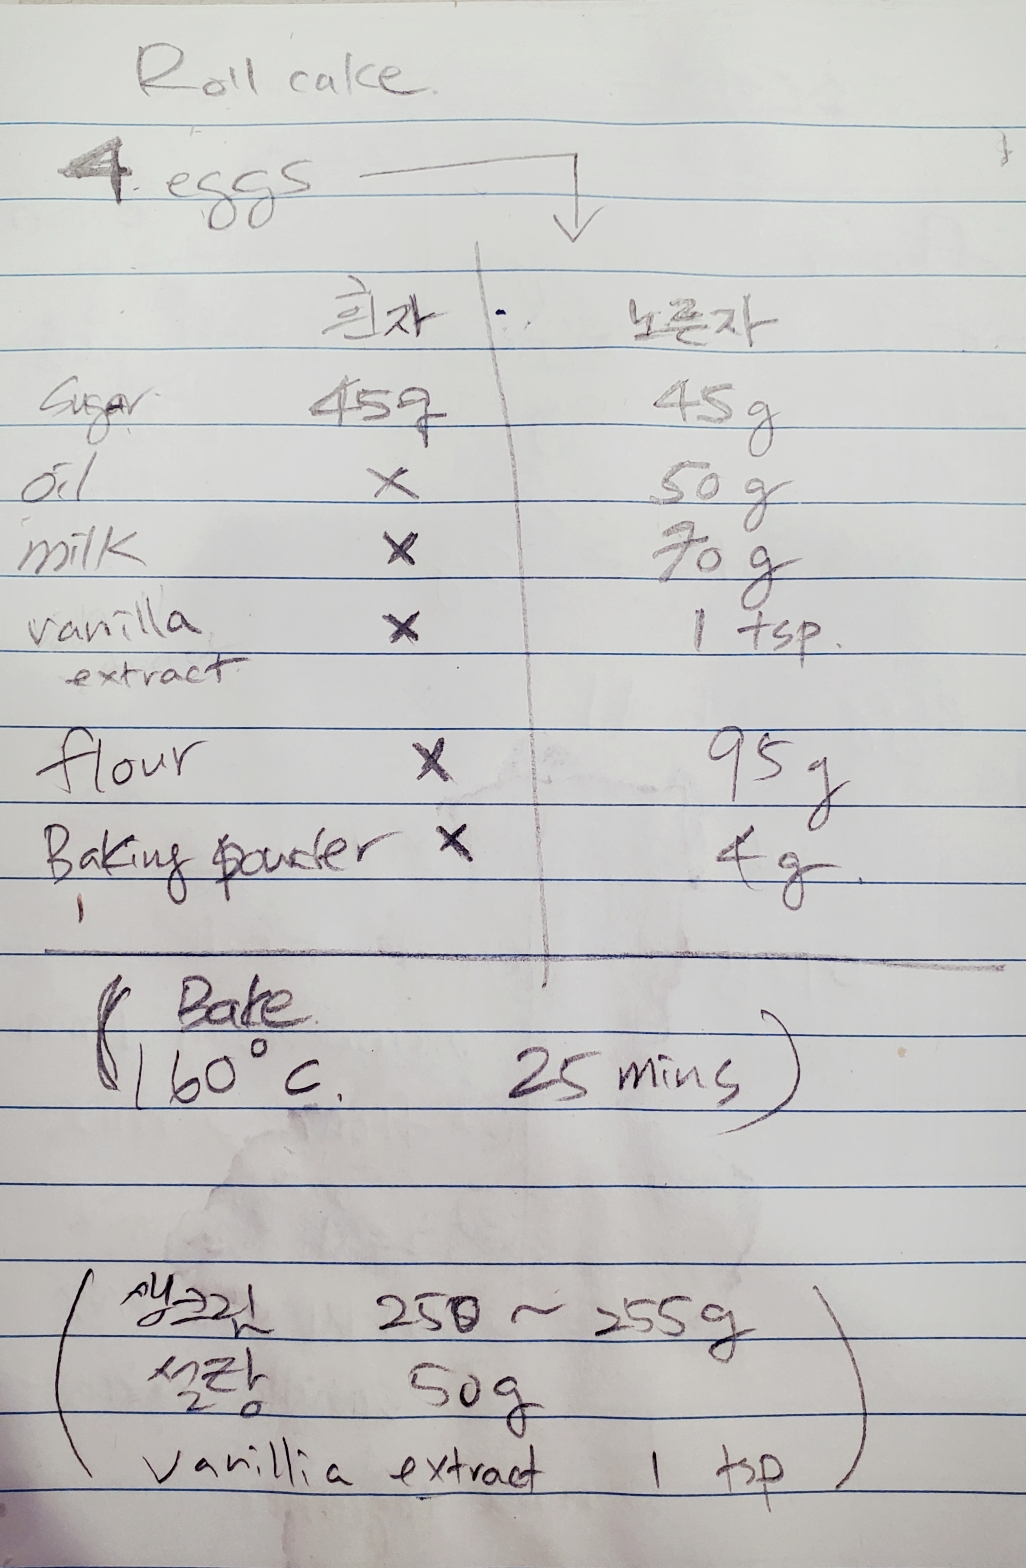 Roll cake.
4. eggs
흰자 노른자
Sugar 45g 45g
oil X 50g
milk X 70g
vanilla X 1 tsp.
extract
flour X 95g
Baking powder X 4g.
( Bake.
160°C. 25 mins )
( 생크림 250 ~ 255g
설탕 50g
vanillia extract 1 tsp )